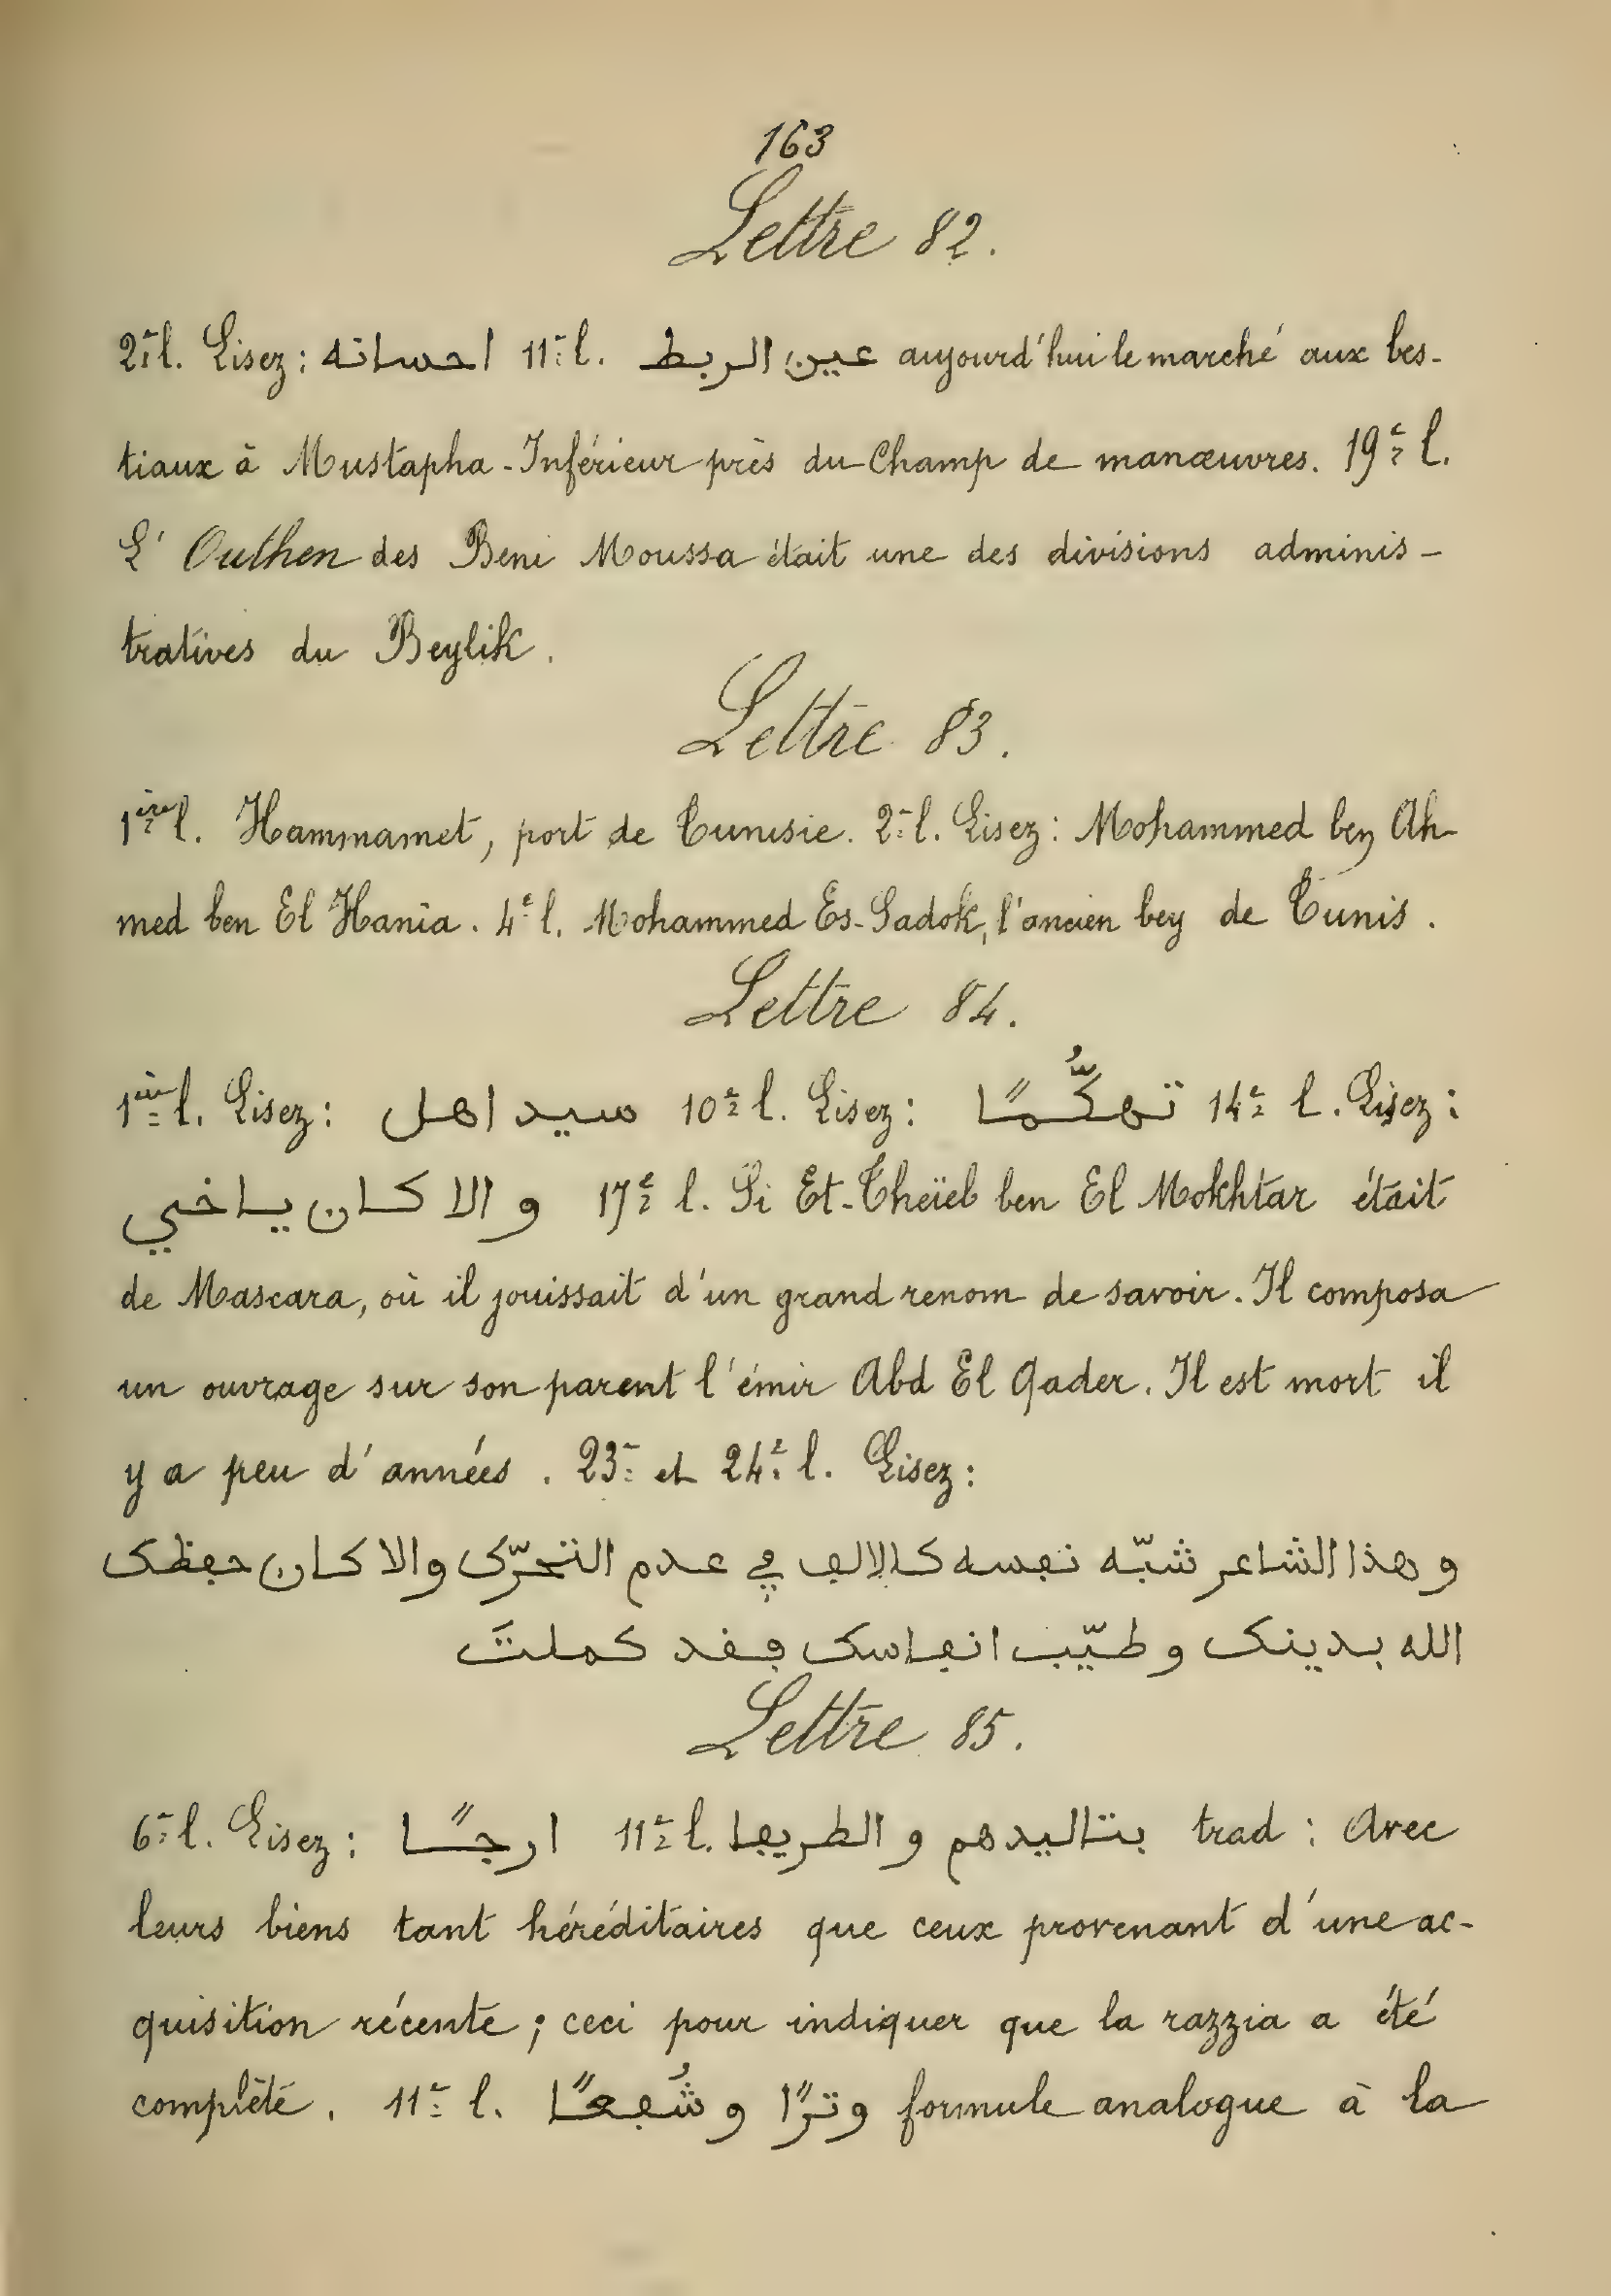 163
Lettre 82.
2e l. Lisez: احسانه 11e l. عين الربط aujourd'hui le marché aux bes-
tiaux à Mustapha-Inférieur près du Champ de manœuvres. 19e l.
L'Outhen des Beni Moussa était une des divisions adminis-
tratives du Beylik.
Lettre 83.
1ère l. Hammamet, port de Tunisie. 2e l. Lisez: Mohammed ben Ah-
med ben El Hania. 4e l. Mohammed Es-Sadok, l'ancien bey de Tunis.
Lettre 84.
1ère l. Lisez: سيد اهل 10e l. Lisez: تهكُّمًا 14e l. Lisez:
والا كان ياخي 17e l. Si Et-Theïeb ben El Mokhtar était
de Mascara, où il jouissait d'un grand renom de savoir. Il composa
un ouvrage sur son parent l'émir Abd El Qader. Il est mort il
y a peu d'années. 23e et 24e l. Lisez:
وهذا الشاعر شبّه نڢسه كالالڢ ڢي عدم التحرّك والا كان حڢظك
الله بدينك وطيّب انڢاسك ڢڧد كملتَ
Lettre 85.
6e l. Lisez: ارجًا 11e l. بتاليدهم و الطريڢا trad: Avec
leurs biens tant héréditaires que ceux provenant d'une ac-
quisition récente; ceci pour indiquer que la razzia a été
complète. 11e l. وترًا و شُڢعًا formule analogue à la